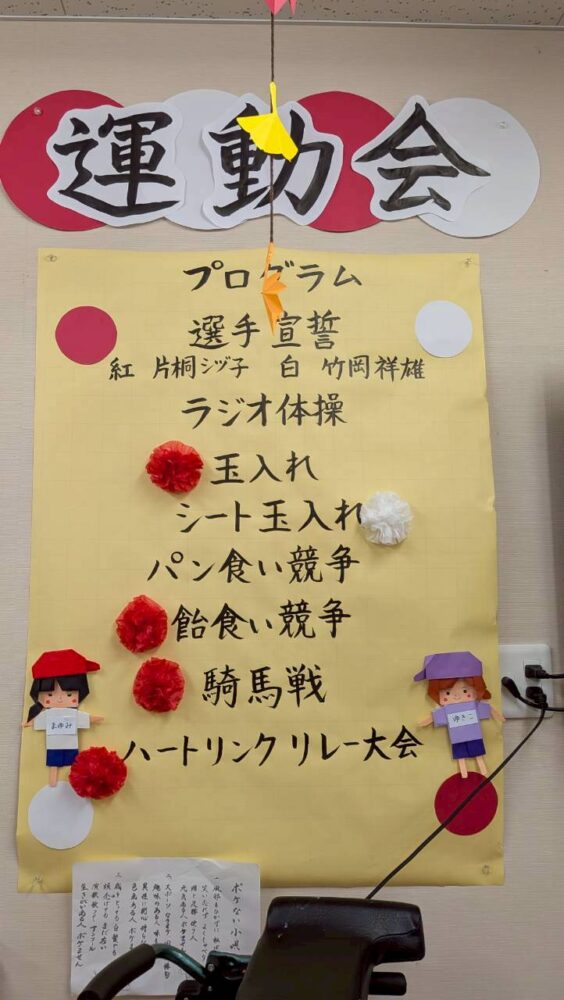 運動会
プログラム
選手宣誓
紅 片桐シヅ子 白 竹岡祥雄
ラジオ体操
玉入れ
シート玉入れ
パン食い競争
飴食い競争
騎馬戦
まゆみ
ゆきこ
ハートリンクリレー大会
ボケない小唄